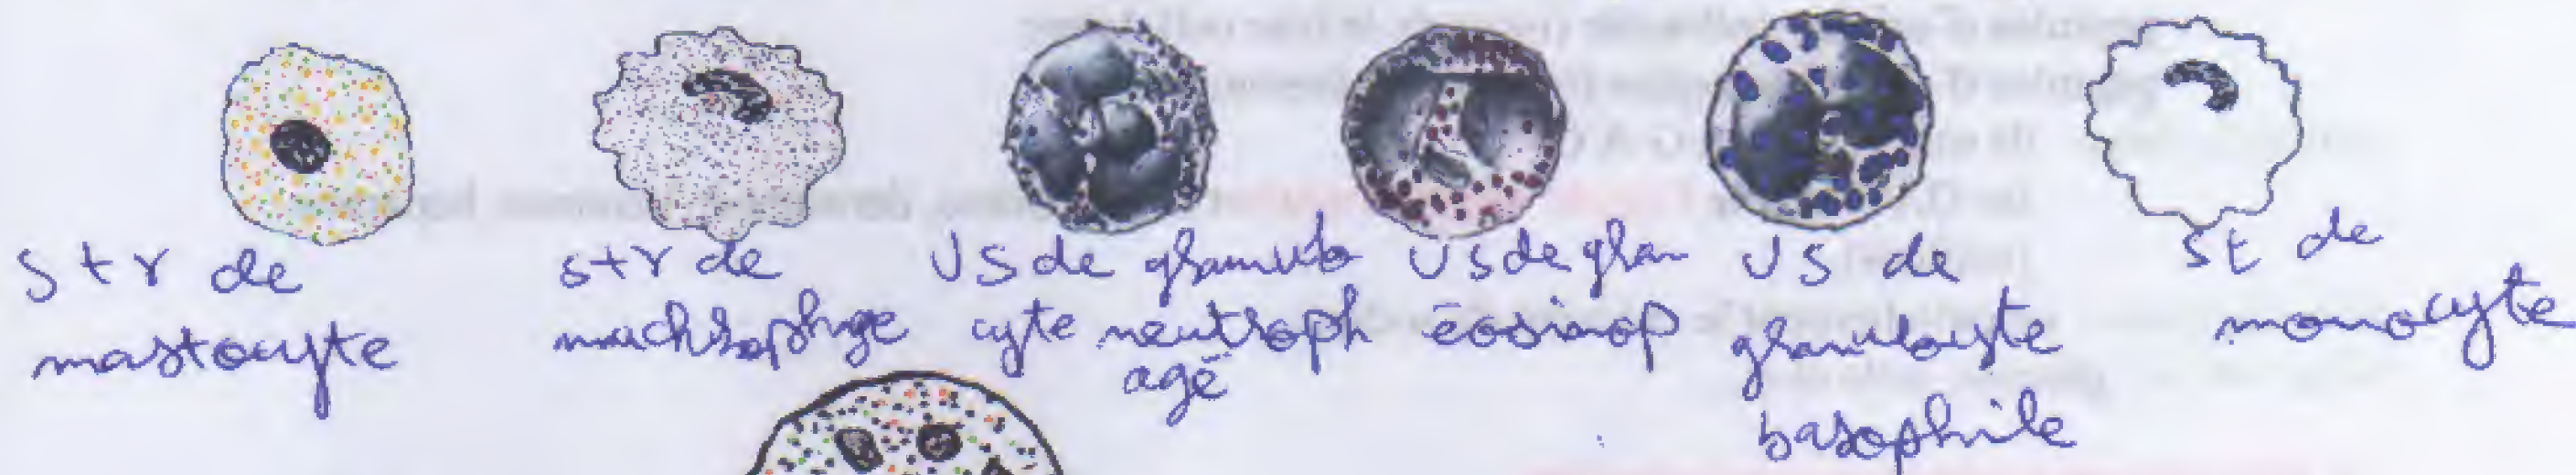 Str de
mastocyte
str de
machrophage
US de granulo
cyte neutroph
agé
Us de gran
éosinop
US de
granulocyte
basophile
St de
monocyte